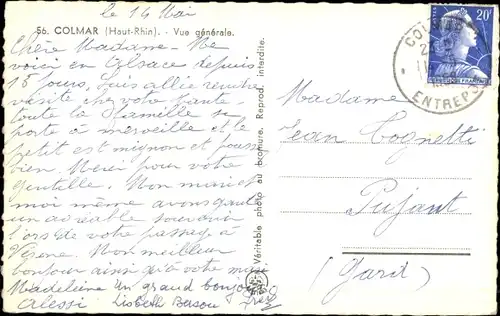 le 14 Mai
56. COLMAR (Haut-Rhin). - Vue générale.
Chère Madame - Me
voici en Alsace depuis
15 jours, suis allée rendre
visite chez votre tante,
toute la famille se
porte à merveille et le
petit est mignon et pousse
bien. Merci pour votre
gentille. Mon
moi même avons gardé
un agréable souvenir
lors de votre passage à
Mon meilleur
bonjour ainsi qu'à votre
Madeleine Un grand bonjour
Alessi Lisbeth
Véritable photo au bromure. Reprod. interdite.
COLMAR
ENTREPOT
20F
Madame
Jean Cognetti
Pujaut
(Gard)